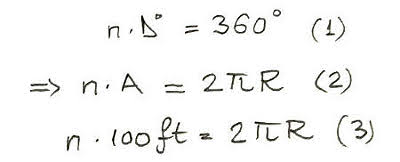 n · D° = 360° (1)
⇒ n · A = 2πR (2)
n · 100 ft = 2πR (3)